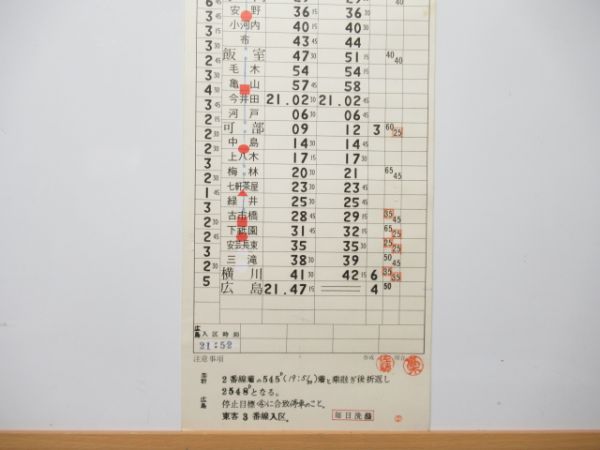 安野 36 15 36 30
小河内 40 15 40 30
布 43 45 44
飯室 47 30 51 15 40 40
毛木 54 54 15
亀山 57 45 58
今井田 21.02 30 21.02 45
河戸 06 30 06 45
可部 09 12 3 60 25
中島 14 30 14 45
上八木 17 15 17 30
梅林 20 30 21 65 45
七軒茶屋 23 30 23 45
緑井 25 30 25 45
古市橋 28 45 29 15 35 45
下祗園 31 45 32 15 65 25
安芸長束 35 35 30 25 25
三滝 38 30 39 50 45
横川 41 30 42 15 6 35 35
広島 21.47 15 4 50
広島 入区時刻
21:52
注意事項
2番線着の545D(19:51/30)着と乗継ぎ後折返し
2548Dとなる。
広島 停止目標④に合致停車のこと。
東客3番線入区。
毎日洗